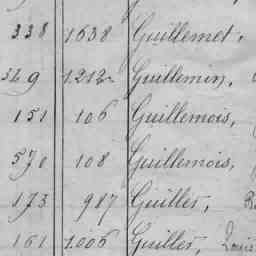 338 1.638 Guillemet,
329 1.212 Guillemin,
151 106 Guillemois,
570 108 Guillemois,
173 987 Guilles,
161 1.006 Guilles, Louis